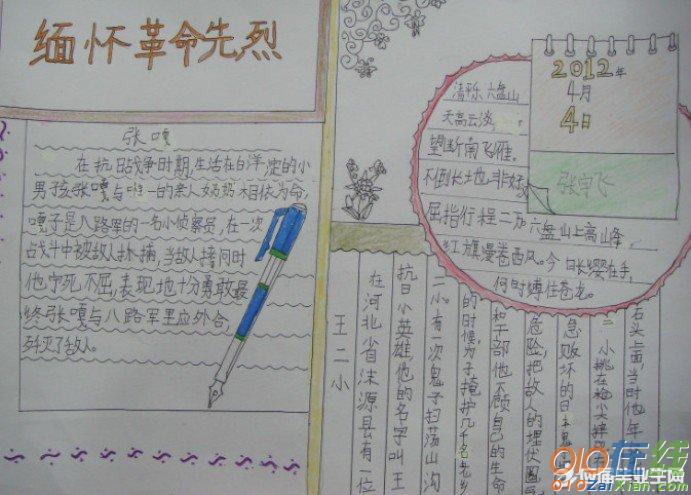 缅怀革命先烈
张嘎
在抗日战争时期,生活在白洋淀的小
男孩张嘎与唯一的亲人奶奶相依为命,
嘎子是八路军的一名小侦察员,在一次
战斗中被敌人抓捕,当敌人拷问时
他宁死不屈,表现地十分勇敢最
终张嘎与八路军里应外合,
歼灭了敌人。
2012年
4月
4日
张宇飞
清平乐 六盘山
天高云淡,
望断南飞雁。
不倒长城非好
屈指行程二万 六盘山上高峰
红旗漫卷西风。今日长缨在手,
何时缚住苍龙。
王二小
在河北省涞源县有一位
抗日小英雄,他的名字叫王
二小。有一次鬼子扫荡山沟
的时候,为了掩护几千名老乡
和干部他不顾自己的生命
危险,把敌人的埋伏圈
急败坏的日本鬼
二小挑在枪尖摔
石头上面,当时他年
910在线
910zaixian.com